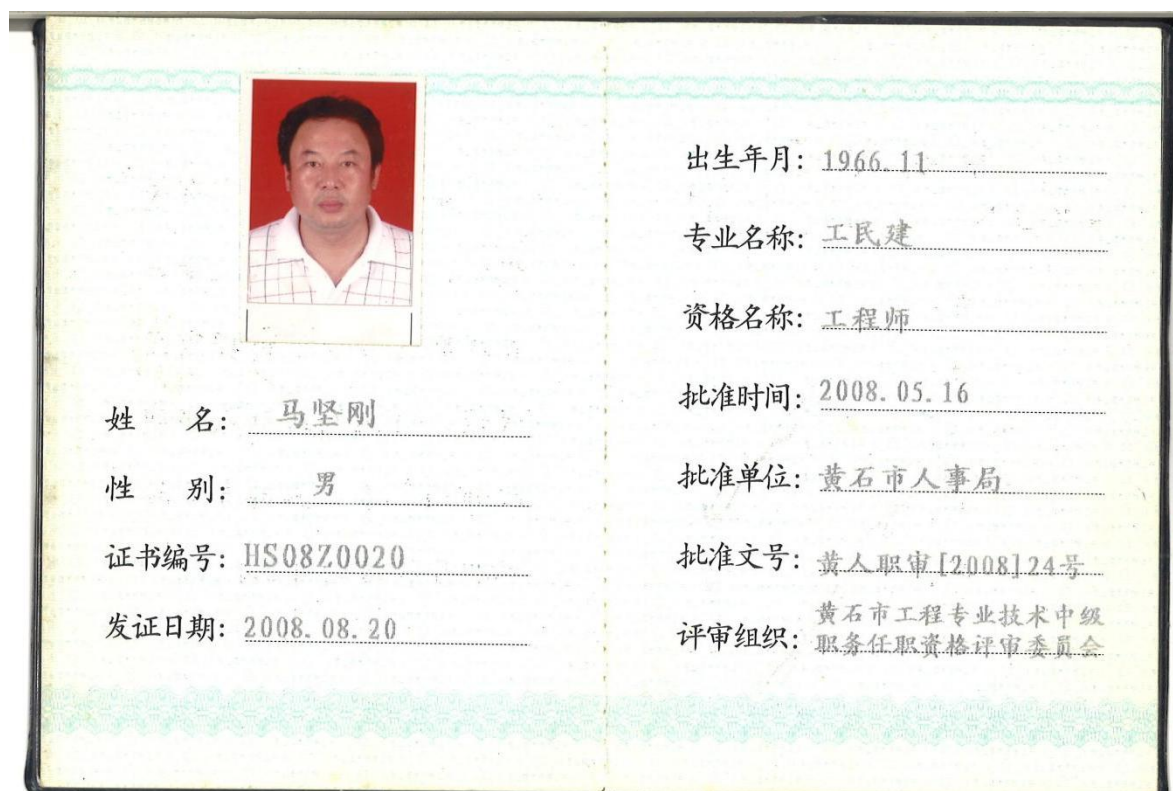 姓 名: 马坚刚
性 别: 男
证书编号: HS08Z0020
发证日期: 2008.08.20
出生年月: 1966.11
专业名称: 工民建
资格名称: 工程师
批准时间: 2008.05.16
批准单位: 黄石市人事局
批准文号: 黄人职审[2008]24号
评审组织: 黄石市工程专业技术中级
职务任职资格评审委员会